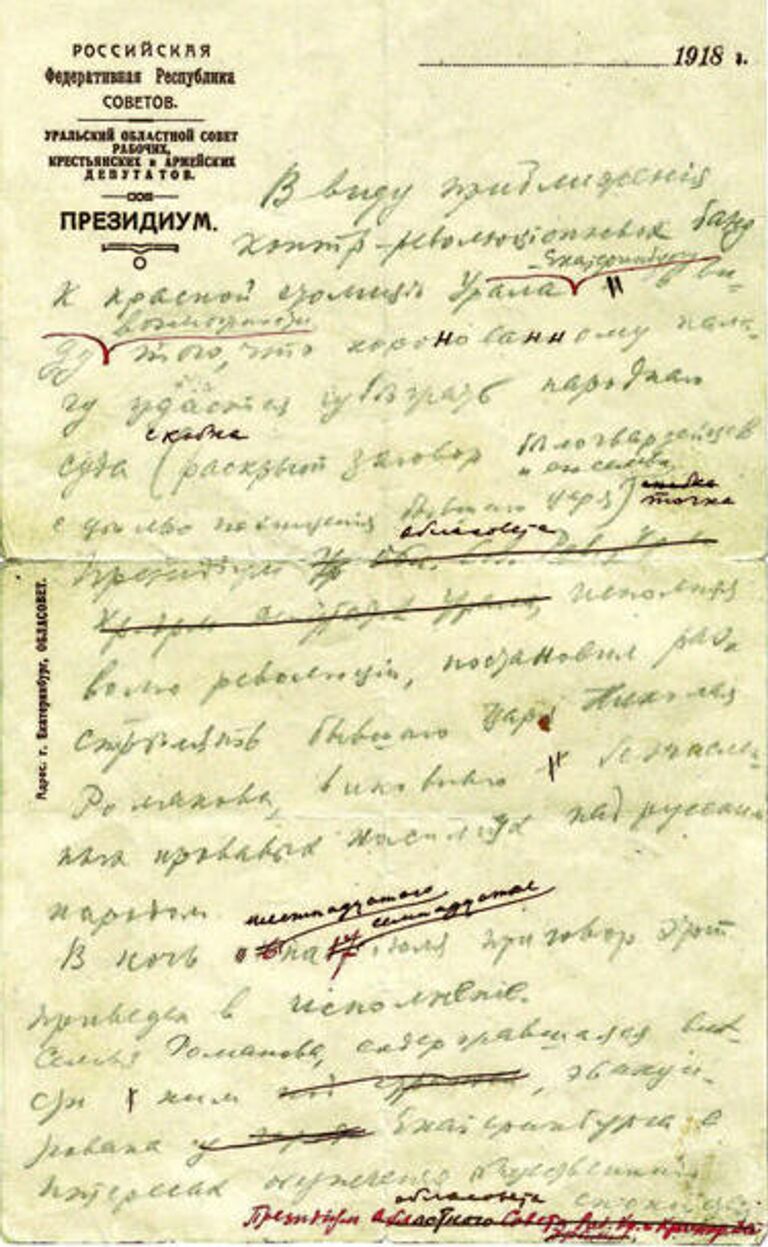 РОССИЙСКАЯ
Федеративная Республика
СОВЕТОВ.
УРАЛЬСКИЙ ОБЛАСТНОЙ СОВЕТ
РАБОЧИХ,
КРЕСТЬЯНСКИХ и АРМЕЙСКИХ
ДЕПУТАТОВ.
ПРЕЗИДИУМ.
1918 г.
В виду приближенія
контр-революціонных банд
Екатеринбургу
к красной столицѣ Урала и в ви-
возможности
ду того, что коронованному пала-
чу удастся избѣжать народнаго
скобка
суда (раскрыт заговор бѣлогвардейцев
с цѣлью похищенія бывшаго царя)
точка
областсовета
Президіум
исполняя
волю революціи, постановил раз-
стрѣлять бывшаго царя Николая
Романова, виновнаго в безчислен-
ных кровавых насиліях над русским
народом
шестнадцатого
семнадцатое
В ночь на июля приговор этот
приведен в исполнение.
Семья Романова, содержавшаяся вмѣ-
сте с ним, эвакуи-
рована из Екатеринбурга в
интересах общественнаго
областсовета
Президіум Областного Совета Раб. Кр. и
Адрес: г. Екатеринбург, ОБЛАСОВЕТ.